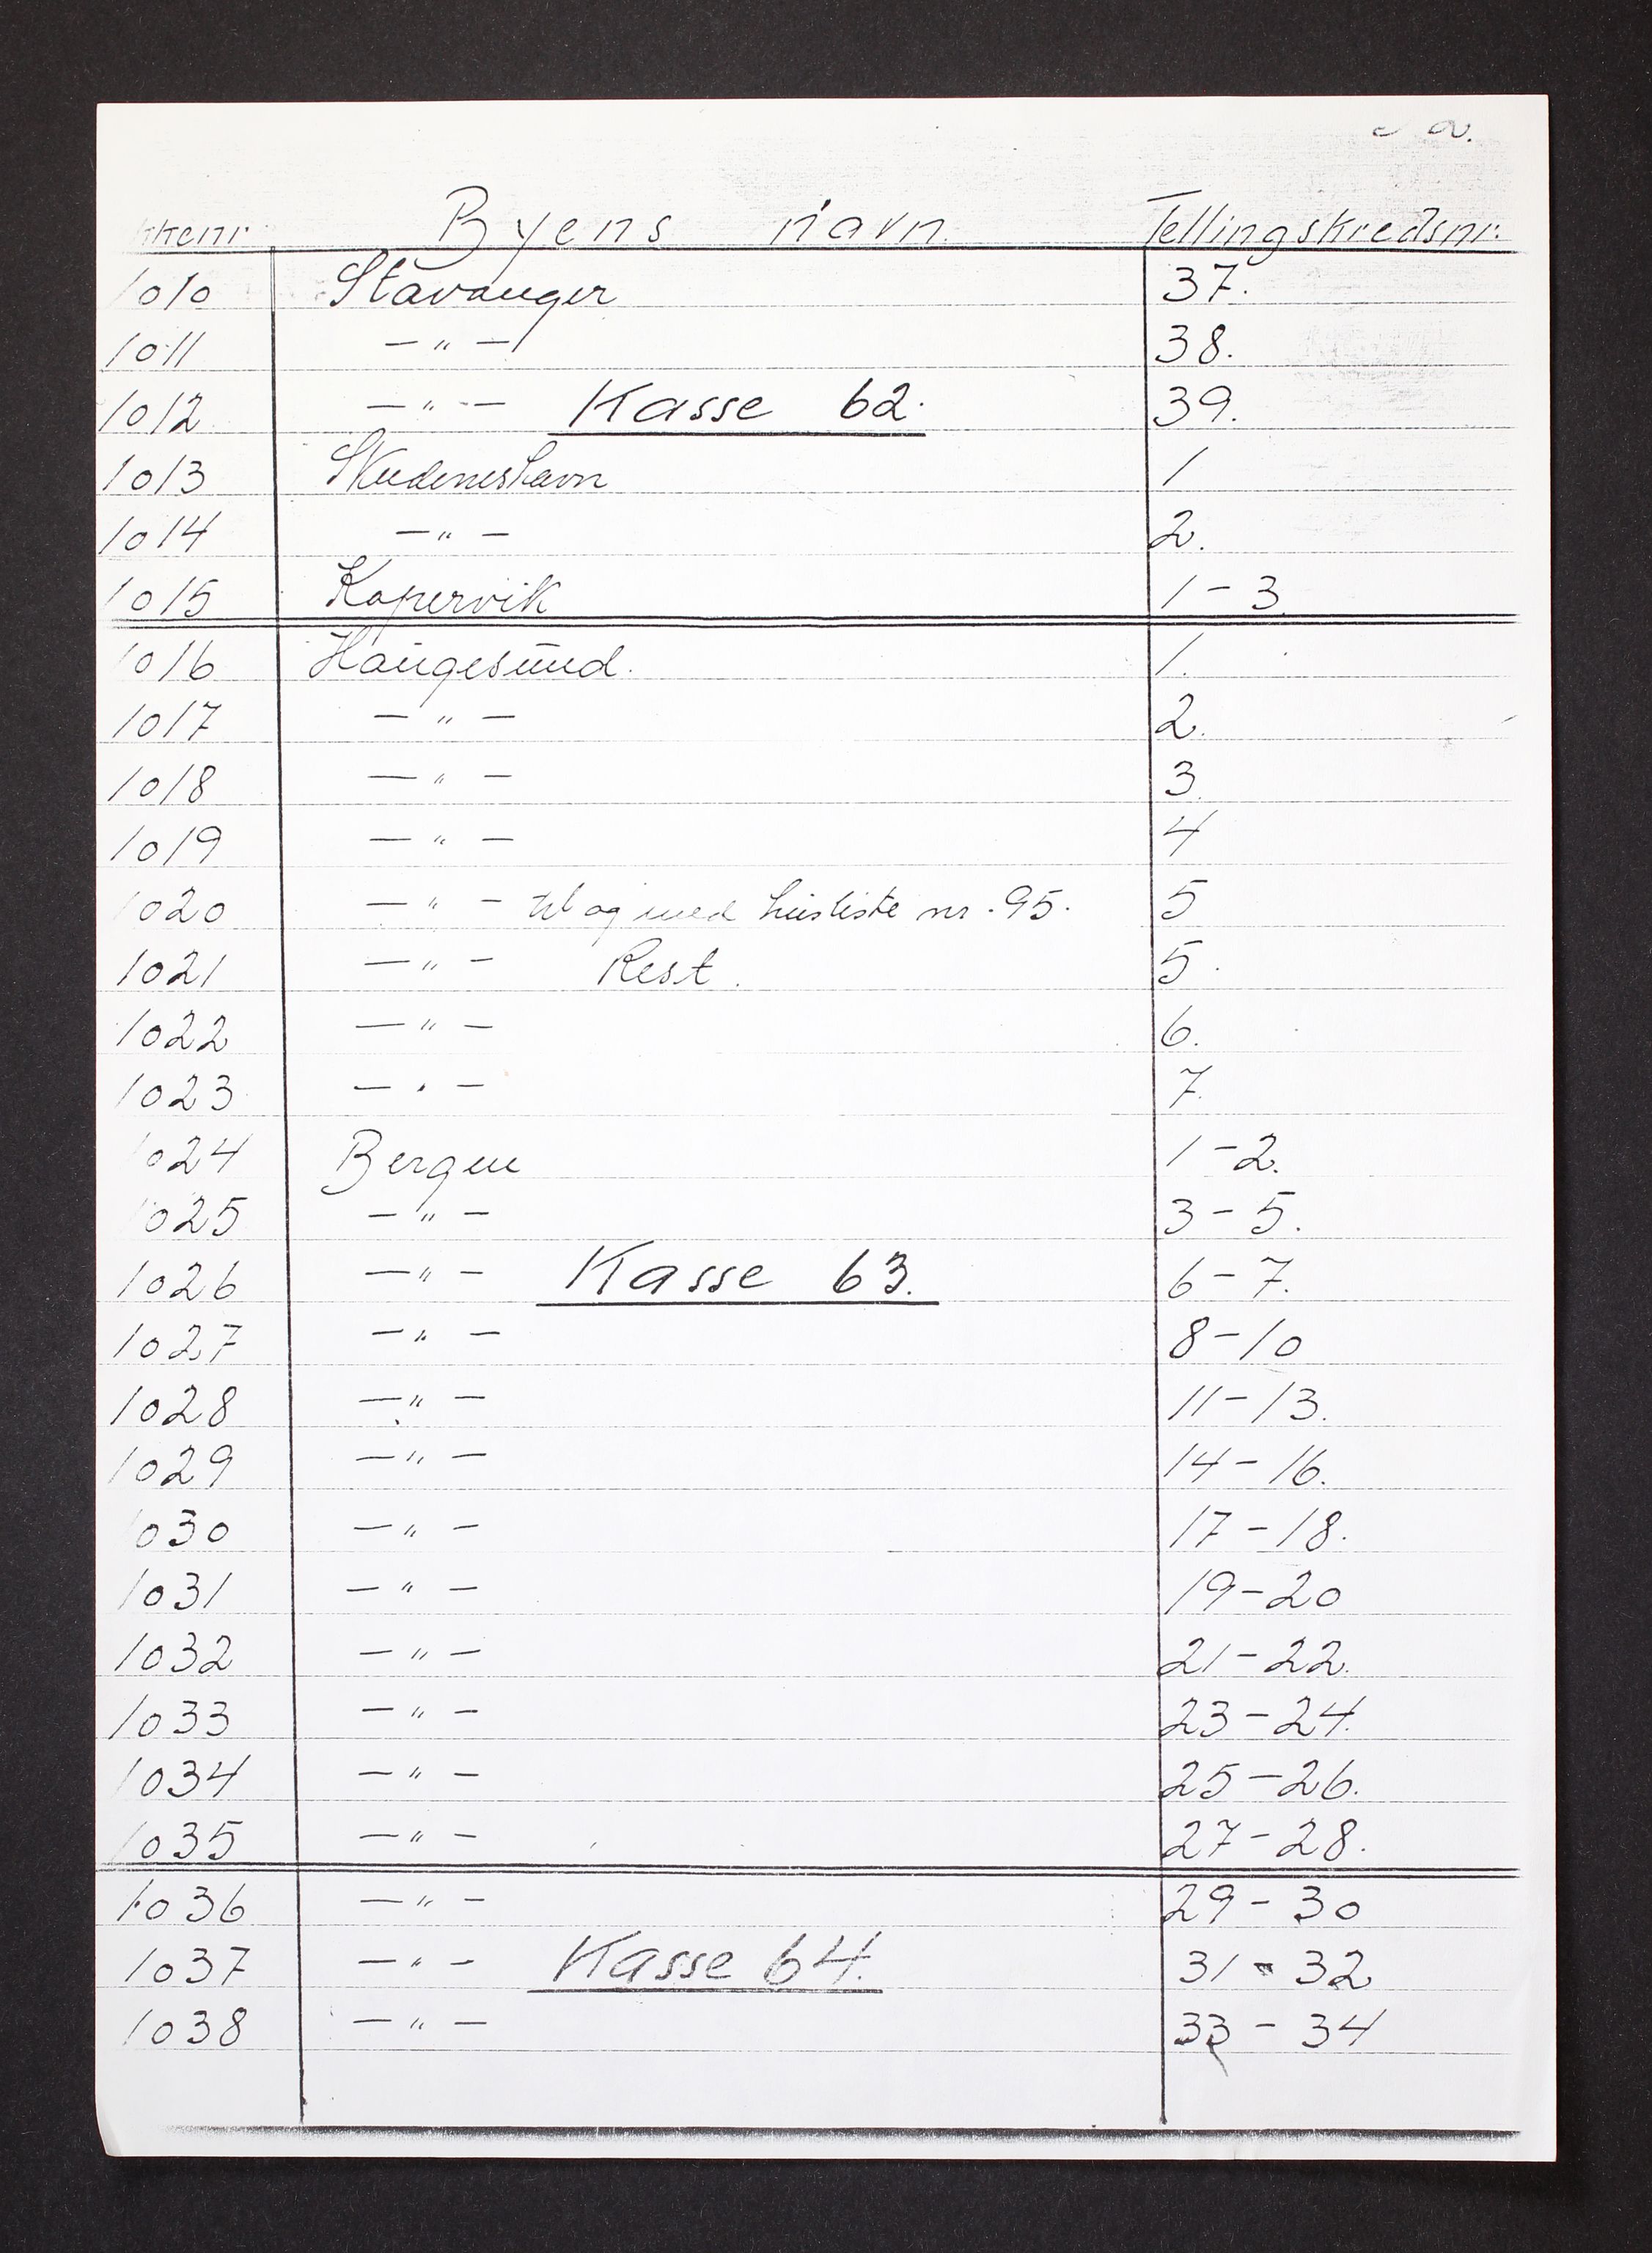 Byens navn Tellingskredsnr.
1010 Stavanger 37.
1011 — " — 38.
1012 — " — Kasse 62. 39.
1013 Skudeneshavn 1
1014 — " — 2.
1015 Kopervik 1 - 3.
1016 Haugesund. 1.
1017 — " — 2.
1018 — " — 3.
1019 — " — 4
1020 — " — til og med husliste nr. 95. 5
1021 — " — Rest. 5.
1022 — " — 6.
1023 — " — 7.
1024 Bergen 1 - 2.
1025 — " — 3 - 5.
1026 — " — Kasse 63. 6 - 7.
1027 — " — 8 - 10
1028 — " — 11 - 13.
1029 — " — 14 - 16.
1030 — " — 17 - 18.
1031 — " — 19 - 20
1032 — " — 21 - 22.
1033 — " — 23 - 24.
1034 — " — 25 - 26.
1035 — " — 27 - 28.
1036 — " — 29 - 30
1037 — " — Kasse 64. 31 - 32
1038 — " — 33 - 34